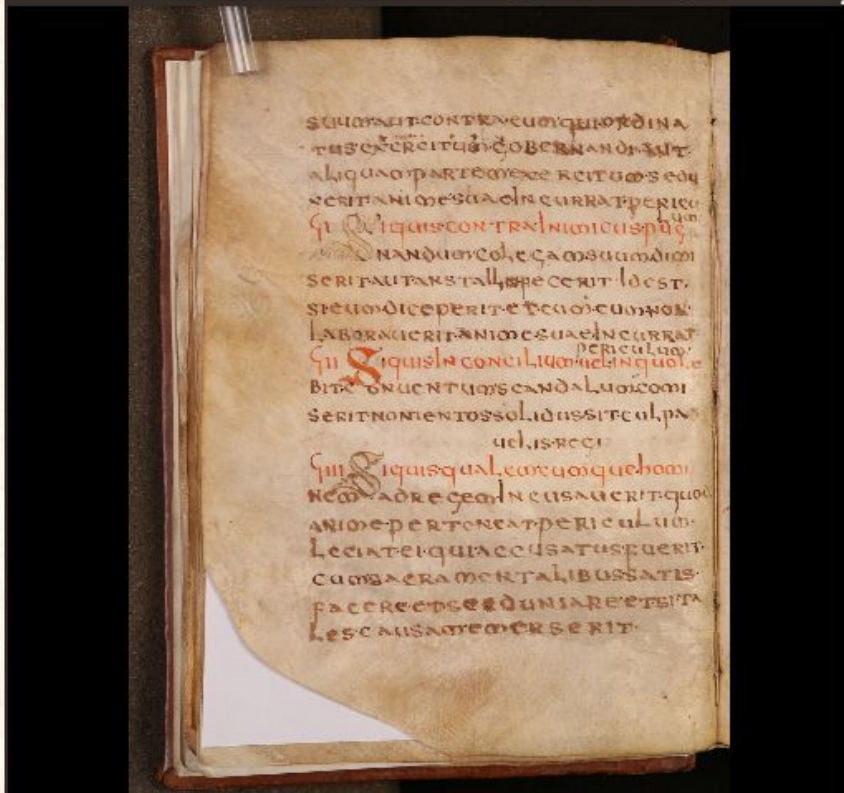 suum aut contra eum qui ordina
tus exercitum gobernandi aut
aliquam partem exercitum sedu
xerit anime suae incurrat pericu
lum
ςI Si quis contra inimicus pug
nandum colegam suum dimi
serit aut astalin fecerit id est
si eum diceperit et cum eum non
laborauerit anime suae incurrat
periculum
ςII Si quis in concilium uel in quole
bit conuentum scandalum comi
serit nonientos solidus sit culpa
uelis regi
ςIII Si quis qualemcumque homi
nem ad regem incusauerit quod
anime perteneat periculum
leciat ei qui accusatus fuerit
cum sacramentalibus satis
facere et se eduniare et si ta
les causa emerserit